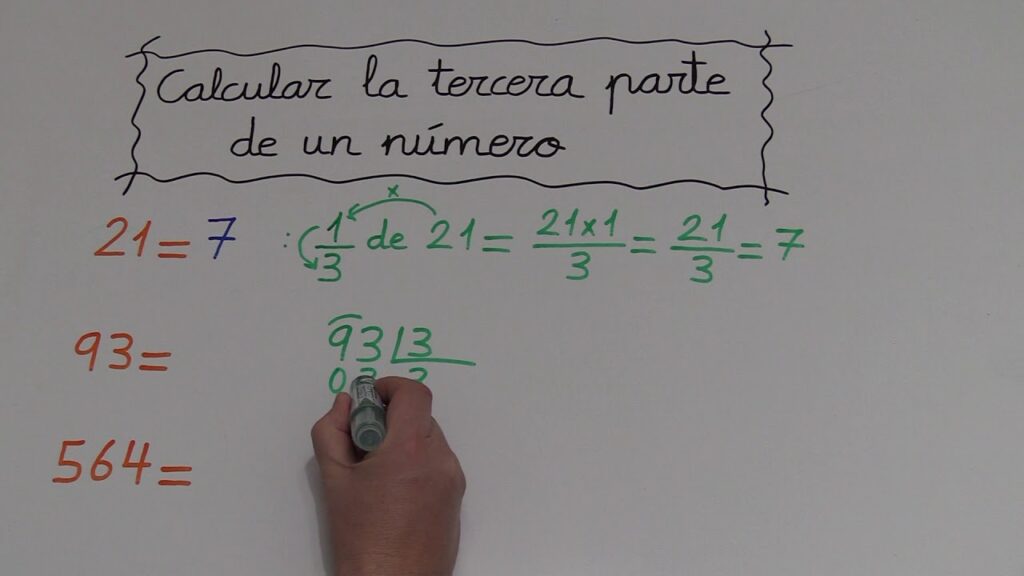 Calcular la tercera parte
de un número
21 = 7 : 1/3 de 21 = 21x1/3 = 21/3 = 7
x
93 = 93 3
0
564 =